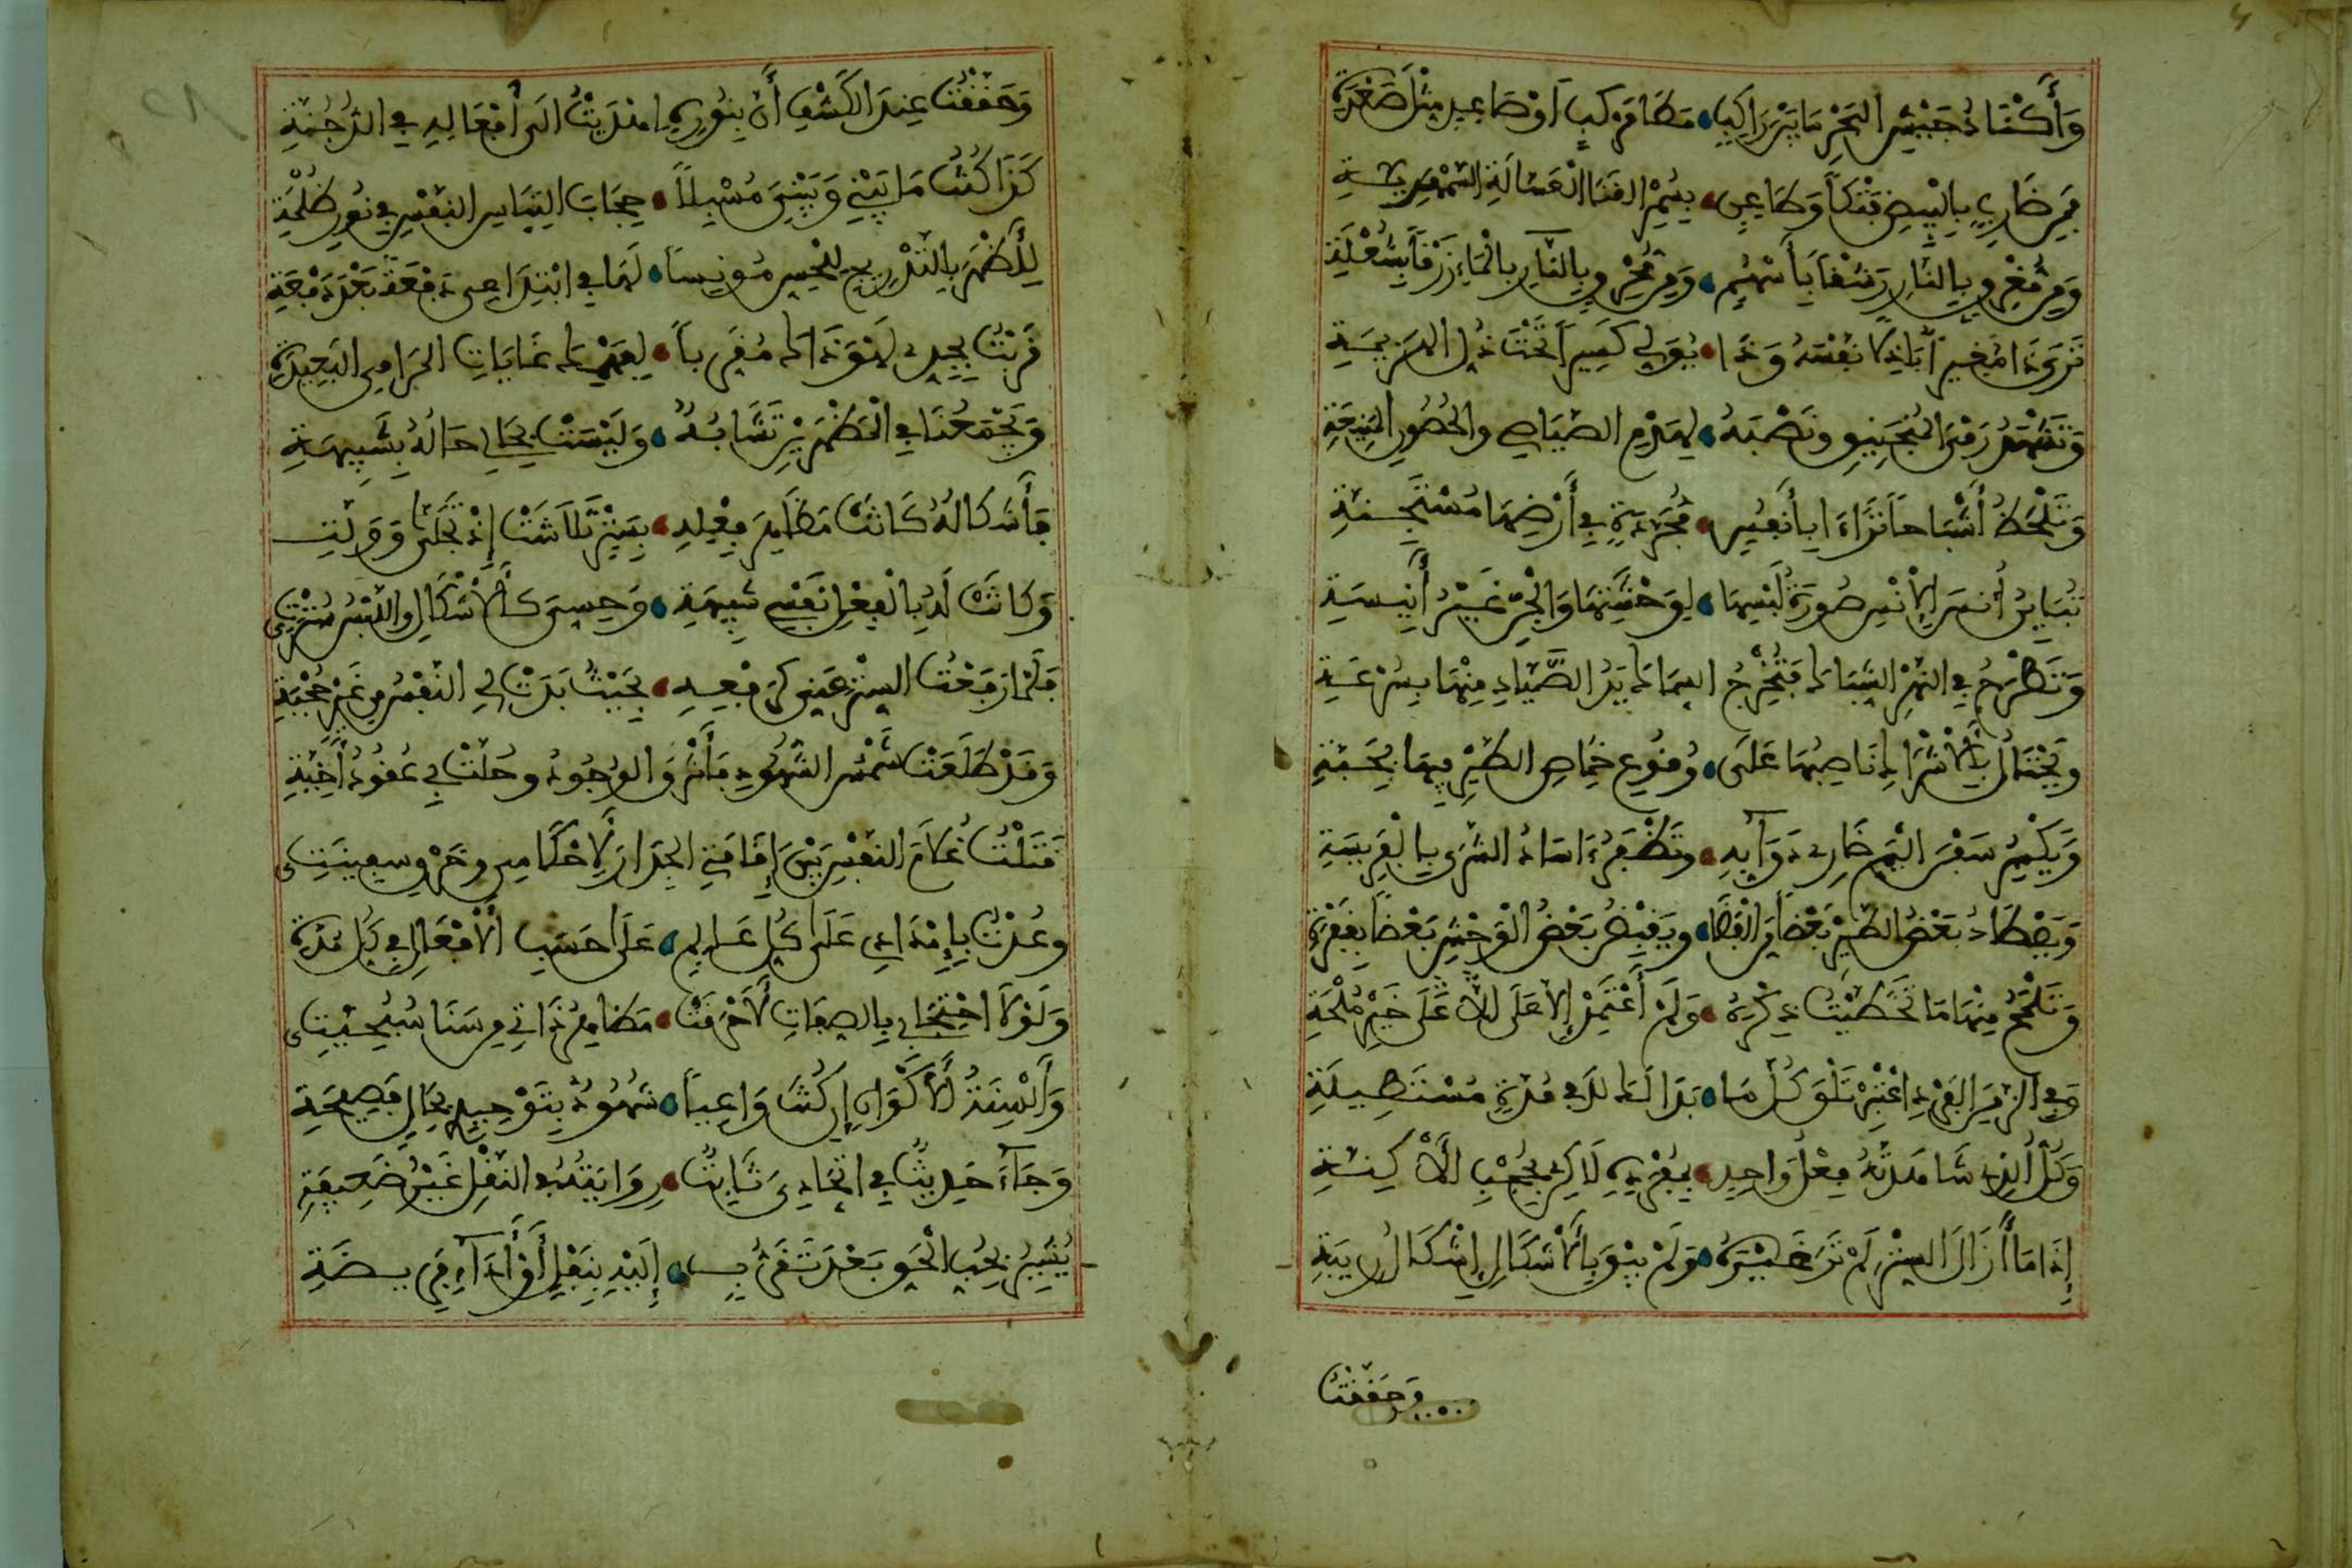 وَأَكْنَادُ جَيْشِ الْبَحْرِ مَا بَيْنَ رَاكِبٍ مَطَا مَرْكَبٍ أَوْ صَاعِدٍ مِثْلَ صَعْدَةِ
فَمِنْ ضَارِبٍ بِالْبِيضِ فَتْكاً وَطَاعِنٍ بِسُمْرِ الْقَنَا الْعَسَّالَةِ السَّمْهَرِيَّةِ
وَمِنْ مُغْرِقٍ بِالنَّارِ رَشْقاً بِأَسْهُمٍ وَمِنْ مُحْرِقٍ بِالنَّارِ بِالْمَاءِ زَرْقاً بِشُعْلَةِ
تَرَى ذَا مُغِيراً بَاذِلاً نَفْسَهُ وَذَا يُوَلِّي كَسِيراً تَحْتَ ذُلِّ الْهَزِيمَةِ
وَتَشْهَدُ رَمْيَ الْمَنْجَنِيقِ وَنَصْبَهُ لِهَدْمِ الصَّيَاصِي وَالْحُصُونِ الْمَنِيعَةِ
وَتَلْحَظُ أَشْبَاحاً تَرَاءَى بِأَنْفُسٍ مُجَرَّدَةٍ فِي أَرْضِهَا مُسْتَجِنَّةِ
تُبَايِنُ أُنْسَ الْإِنْسِ صُورَةُ لُبْسِهَا لِوَحْشَتِهَا وَالْجِنُّ غَيْرُ أَنِيسَةِ
وَتَطْرَحُ فِي النَّهْرِ الشِّبَاكَ فَتُخْرِجُ السِّمَاكَ يَدُ الصَّيَّادِ مِنْهَا بِسُرْعَةِ
وَيَحْتَالُ بِالْأَشْرَاكِ نَاصِبُهَا عَلَى وُقُوعِ خِمَاصِ الطَّيْرِ فِيهَا بِحَبَّةِ
وَيَكْسِرُ سُفْنَ الْيَمِّ ضَارِي دَوَابِهِ وَتَظْفَرُ ءَاسَادُ الشَّرَى بِالْفَرِيسَةِ
وَيَصْطَادُ بَعْضُ الطَّيْرِ بَعْضاً مِنَ الْفَضَا وَيَقْنِصُ بَعْضُ الْوَحْشِ بَعْضاً بِقَفْرَةِ
وَتَلْمَحُ مِنْهَا مَا تَخَطَّيْتُ ذِكْرَهُ وَلَمْ أَعْتَمِدْ إِلَّا عَلَى خَيْرِ مُلْحَةِ
وَفِي الزَّمَنِ الْفَرْدِ اعْتَبِرْ تَلْقَ كُلَّ مَا بَدَا لَكَ لَا فِي مُدَّةٍ مُسْتَطِيلَةِ
وَكُلُّ الَّذِي شَاهَدْتَهُ فِعْلُ وَاحِدٍ بِمُفْرَدِهِ لَاكِنْ بِحُجْبِ الْأَكِنَّةِ
إِذَا مَا أَزَالَ السِّتْرَ لَمْ تَرَ غَيْرَهُ وَلَمْ يَبْقَ بِالْأَشْكَالِ إِشْكَالُ رِيبَةِ
وَحَقَّقْتَ
وَحَقَّقْتَ عِنْدَ الْكَشْفِ أَنْ بِنُورِهِ اهْتَدَيْتَ إِلَى أَفْعَالِهِ فِي الدُّجُنَّةِ
كَذَا كُنْتُ مَا بَيْنِي وَبَيْنِي مُسْبِلاً حِجَابَ الْتِبَاسِ النَّفْسِ فِي نُورِ ظُلْمَةِ
لِأَظْهَرَ بِالتَّدْرِيجِ لِلْحِسِّ مُونِساً لَهَا فِي ابْتِدَاعِي دَفْعَةً بَعْدَ دَفْعَةِ
قَرَنْتُ بِجِدِّي لَهْوَ ذَاكَ مُقَرِّباً لِفَهْمِكَ غَايَاتِ الْمَرَامِي الْبَعِيدَةِ
وَيَجْمَعُنَا فِي الْمَظْهَرَيْنِ تَشَابُهٌ وَلَيْسَتْ بِحَالِي حَالُهُ بِشَبِيهَةِ
فَأَشْكَالُهُ كَانَتْ مَظَاهِرَ فِعْلِهِ بِسِتْرٍ تَلَاشَتْ إِذْ تَجَلَّى وَوَلَّتِ
وَكَانَتْ لَهُ بِالْفِعْلِ نَفْسِي شَبِيهَةً وَحِسِّيَ كَالْأَشْكَالِ وَاللُّبْسُ سُتْرَتِي
فَلَمَّا رَفَعْتُ السِّتْرَ عَنِّي كَرَفْعِهِ بِحَيْثُ بَدَتْ لِي النَّفْسُ مِنْ غَيْرِ حُجْبَةِ
وَقَدْ طَلَعَتْ شَمْسُ الشُّهُودِ فَأَشْرَقَ الْوُجُودُ وَحَلَّتْ بِي عُقُودُ أَخِيَّةِ
قَتَلْتُ غُلَامَ النَّفْسِ بَيْنَ إِقَامَتِي الْجِدَارَ لِأَحْكَامِي وَخَرْقِ سَفِينَتِي
وَعُدْتُ بِإِمْدَادِي عَلَى كُلِّ عَالَمٍ عَلَى حَسَبِ الْأَفْعَالِ فِي كُلِّ مُدَّةِ
وَلَوْلَا احْتِجَابِي بِالصِّفَاتِ لَأُحْرِقَتْ مَظَاهِرُ ذَاتِي مِنْ سَنَا سُبُحِيَّتِي
وَأَلْسِنَةُ الْأَكْوَانِ إِنْ كُنْتَ وَاعِياً شُهُودٌ بِتَوْحِيدِي بِحَالٍ فَصِيحَةِ
وَجَآءَ حَدِيثٌ فِي اتِّحَادِيَ ثَابِتٌ رِوَايَتُهُ فِي النَّقْلِ غَيْرُ ضَعِيفَةِ
يُشِيرُ بِحُبِّ الْحَقِّ بَعْدَ تَقَرُّبٍ إِلَيْهِ بِنَفْلٍ أَوْ أَدَآءِ فَرِيضَةِ